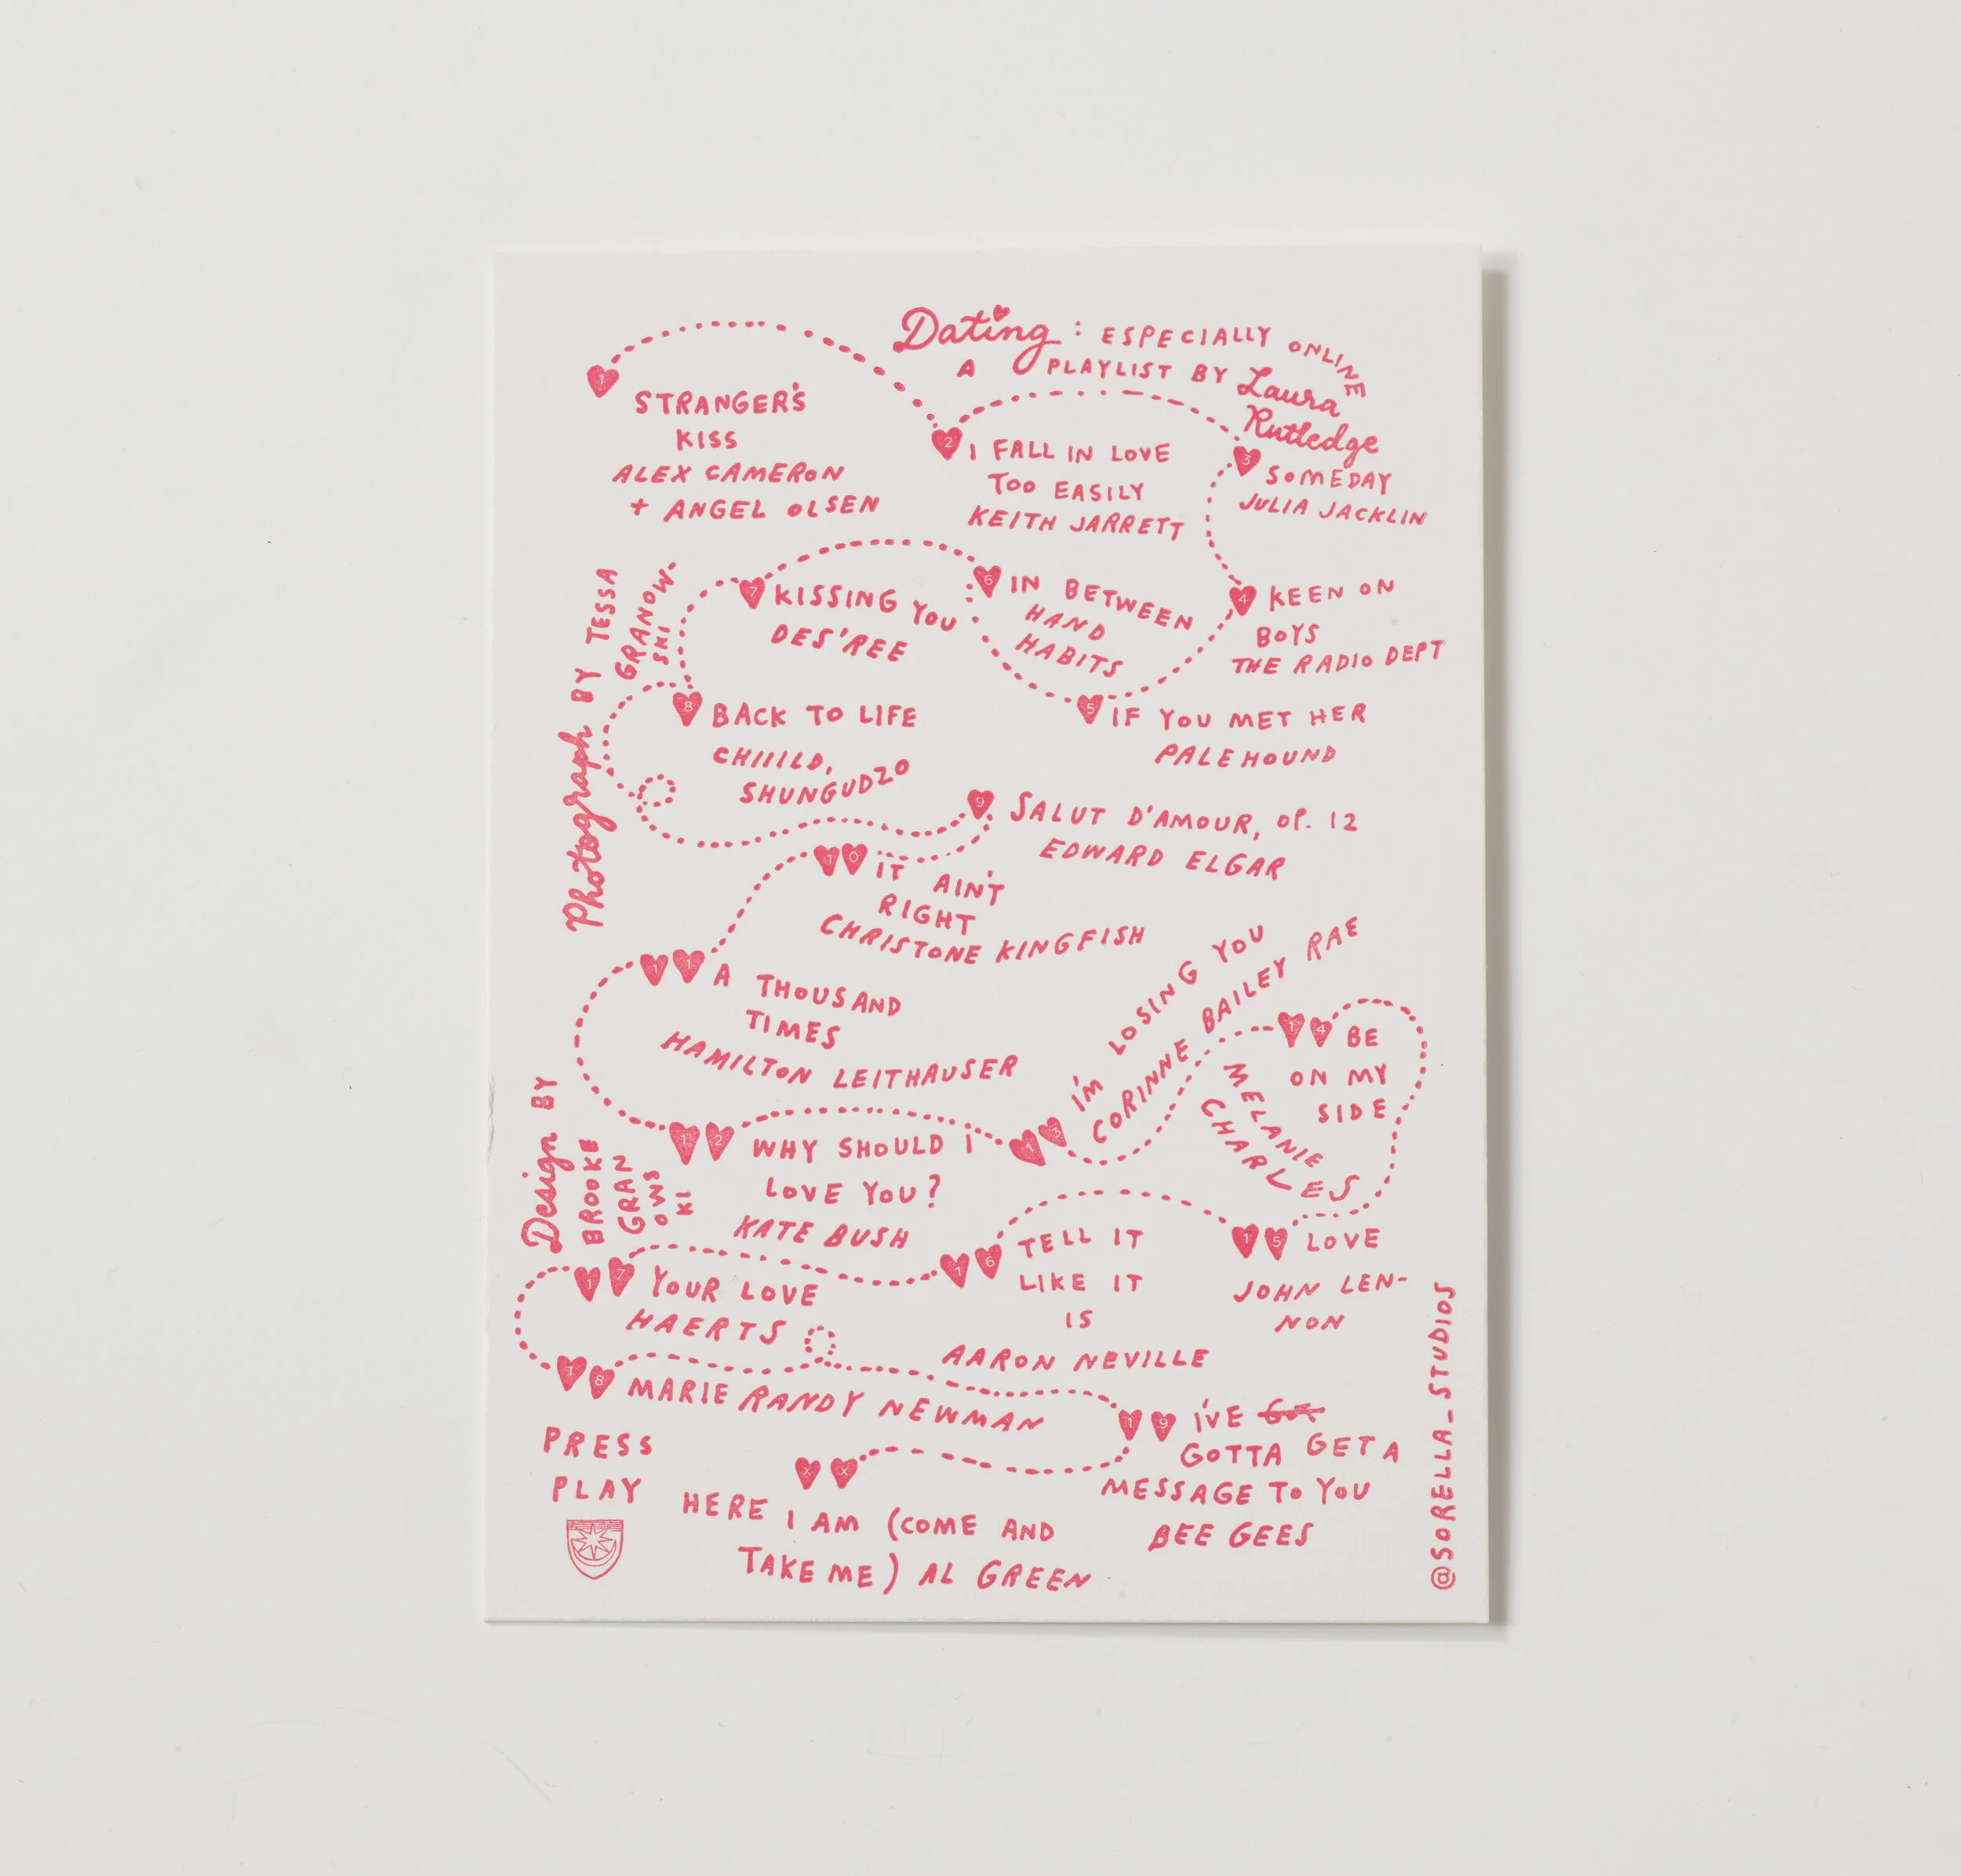 Dating: ESPECIALLY ONLINE
A PLAYLIST BY Laura
Rutledge
1
STRANGER'S
KISS
ALEX CAMERON
+ ANGEL OLSEN
2 I FALL IN LOVE
TOO EASILY
KEITH JARRETT
3 SOMEDAY
JULIA JACKLIN
4 KEEN ON
BOYS
THE RADIO DEPT
5 IF YOU MET HER
PALEHOUND
6 IN BETWEEN
HAND
HABITS
7 KISSING YOU
DES'REE
8 BACK TO LIFE
CHIIILD,
SHUNGUDZO
9 SALUT D'AMOUR, OP. 12
EDWARD ELGAR
10 IT AIN'T
RIGHT
CHRISTONE KINGFISH
11 A THOUSAND
TIMES
HAMILTON LEITHAUSER
12 WHY SHOULD I
LOVE YOU?
KATE BUSH
13 I'M LOSING YOU
CORINNE BAILEY RAE
14 BE
ON MY
SIDE
MELANIE
CHARLES
15 LOVE
JOHN LEN-
NON
16 TELL IT
LIKE IT
IS
AARON NEVILLE
17 YOUR LOVE
HAERTS
18 MARIE RANDY NEWMAN
19 I'VE GOT
GOTTA GET A
MESSAGE TO YOU
BEE GEES
XX
HERE I AM (COME AND
TAKE ME) AL GREEN
PRESS
PLAY
Photograph BY TESSA
GRANOW-
SKI
Design BY
BROOKE
GRAN
OWS
KI
@SORELLA_STUDIOS